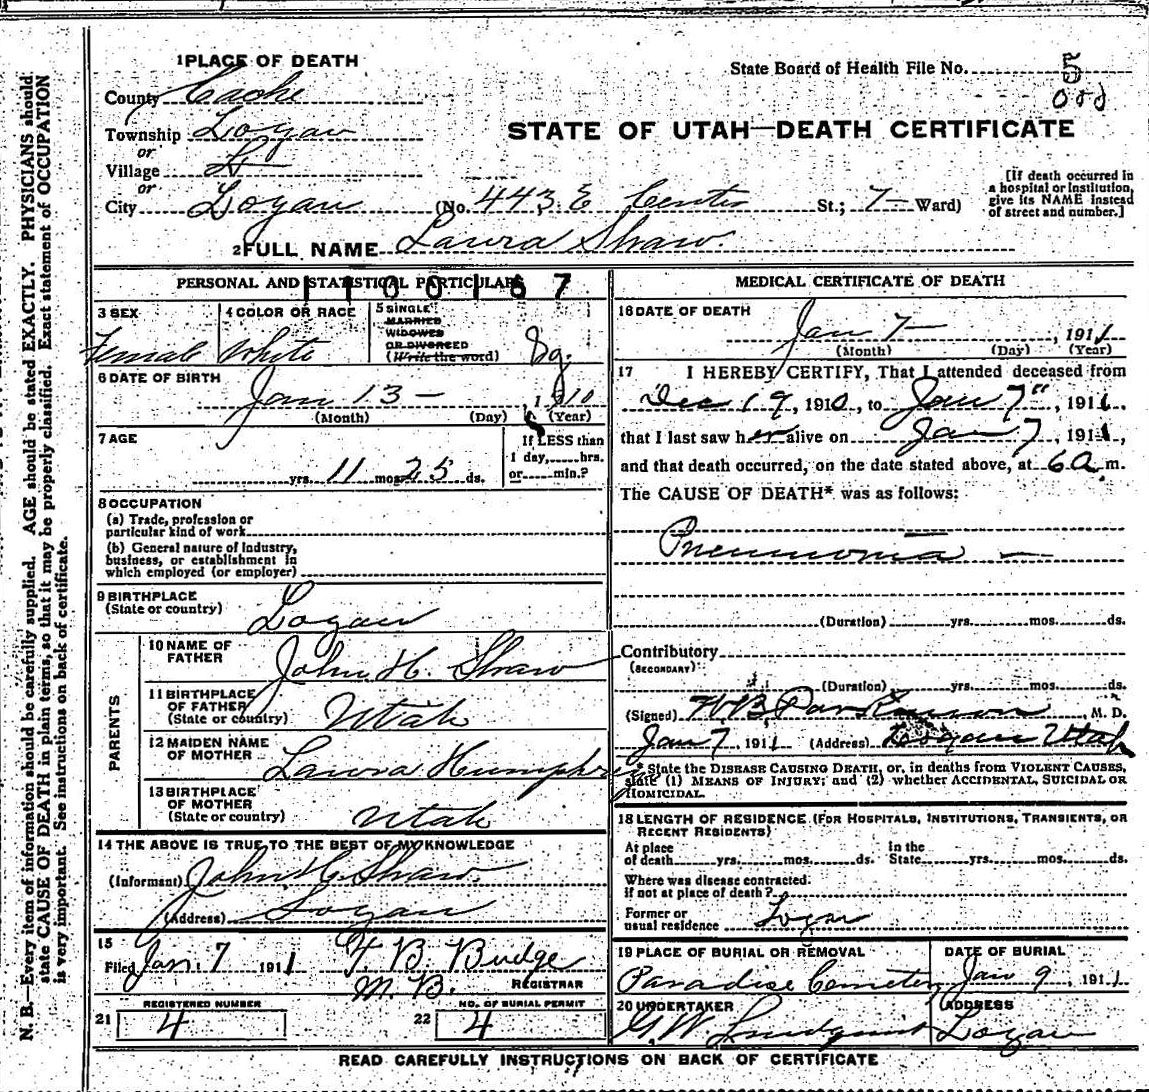 1 PLACE OF DEATH
State Board of Health File No. 5
County Cache
Township Logan
or
Village
or
City Logan (No. 443 E Center St.; 7 Ward)
STATE OF UTAH—DEATH CERTIFICATE
[If death occurred in
a hospital or institution,
give its NAME instead
of street and number.]
2 FULL NAME Laura Shaw.
PERSONAL AND STATISTICAL PARTICULARS
1100167
3 SEX
Female
4 COLOR OR RACE
White
5 SINGLE
MARRIED
WIDOWED
OR DIVORCED
(Write the word) Sg.
6 DATE OF BIRTH
Jan 13 — 1910
(Month) (Day) (Year)
7 AGE
yrs. 11 mos. 25 ds.
If LESS than
1 day, hrs.
or min.?
8 OCCUPATION
(a) Trade, profession or
particular kind of work
(b) General nature of industry,
business, or establishment in
which employed (or employer)
9 BIRTHPLACE
(State or country) Logan
PARENTS
10 NAME OF
FATHER John H. Shaw
11 BIRTHPLACE
OF FATHER
(State or country) Utah
12 MAIDEN NAME
OF MOTHER Laura Humphrey
13 BIRTHPLACE
OF MOTHER
(State or country) Utah
14 THE ABOVE IS TRUE TO THE BEST OF MY KNOWLEDGE
(Informant) John H. Shaw
(Address) Logan
15
Filed Jan. 7 1911 F. B. Budge
M. B. REGISTRAR
REGISTERED NUMBER
21 4
NO. OF BURIAL PERMIT
22 4
MEDICAL CERTIFICATE OF DEATH
16 DATE OF DEATH
Jan 7 — , 1911
(Month) (Day) (Year)
17 I HEREBY CERTIFY, That I attended deceased from
Dec 19, 1910, to Jan 7", 1911,
that I last saw her alive on Jan 7, 1911,
and that death occurred, on the date stated above, at 6 a m.
The CAUSE OF DEATH* was as follows:
Pneumonia —
(Duration) yrs. mos. ds.
Contributory
(SECONDARY)
(Duration) yrs. mos. ds.
(Signed) W.B. Parkinson M. D.
Jan 7, 1911 (Address) Logan Utah
* State the DISEASE CAUSING DEATH, or, in deaths from VIOLENT CAUSES,
state (1) MEANS OF INJURY; and (2) whether ACCIDENTAL, SUICIDAL OR
HOMICIDAL.
18 LENGTH OF RESIDENCE (FOR HOSPITALS, INSTITUTIONS, TRANSIENTS, OR
RECENT RESIDENTS)
At place
of death yrs. mos. ds.
In the
State yrs. mos. ds.
Where was disease contracted.
if not at place of death?
Former or
usual residence Logan
19 PLACE OF BURIAL OR REMOVAL
Paradise Cemetery
DATE OF BURIAL
Jan 9, 1911
20 UNDERTAKER
G. W. Lundquist
ADDRESS
Logan
READ CAREFULLY INSTRUCTIONS ON BACK OF CERTIFICATE
N. B.—Every item of information should be carefully supplied. AGE should be stated EXACTLY. PHYSICIANS should
state CAUSE OF DEATH in plain terms, so that it may be properly classified. Exact statement of OCCUPATION
is very important. See instructions on back of certificate.